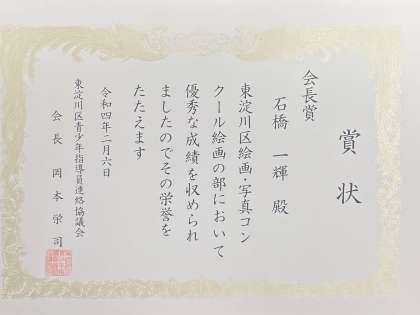 賞状
会長賞
石橋 一輝 殿
東淀川区絵画・写真コン
クール絵画の部において
優秀な成績を収められ
ましたのでその栄誉を
たたえます
令和四年二月六日
東淀川区青少年指導員連絡協議会
会長 岡本栄司